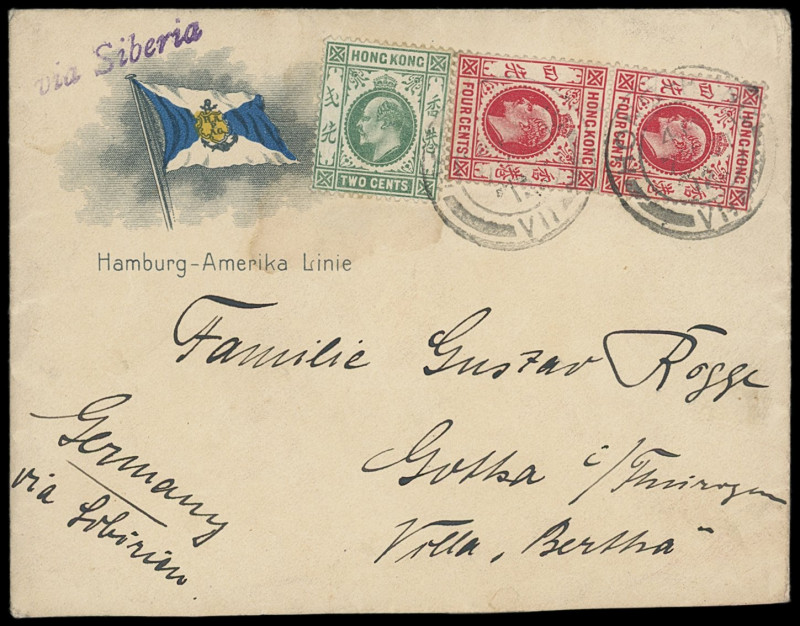 via Siberia
HONG KONG
香港
TWO CENTS
HONG KONG
FOUR CENTS
四 先
香港
HONG KONG
FOUR CENTS
四 先
香港
VII
VII
Hamburg-Amerika Linie
Familie Gustav Rögge
Gotha i/Thüringen
Villa „Bertha“
Germany
via Sibirien